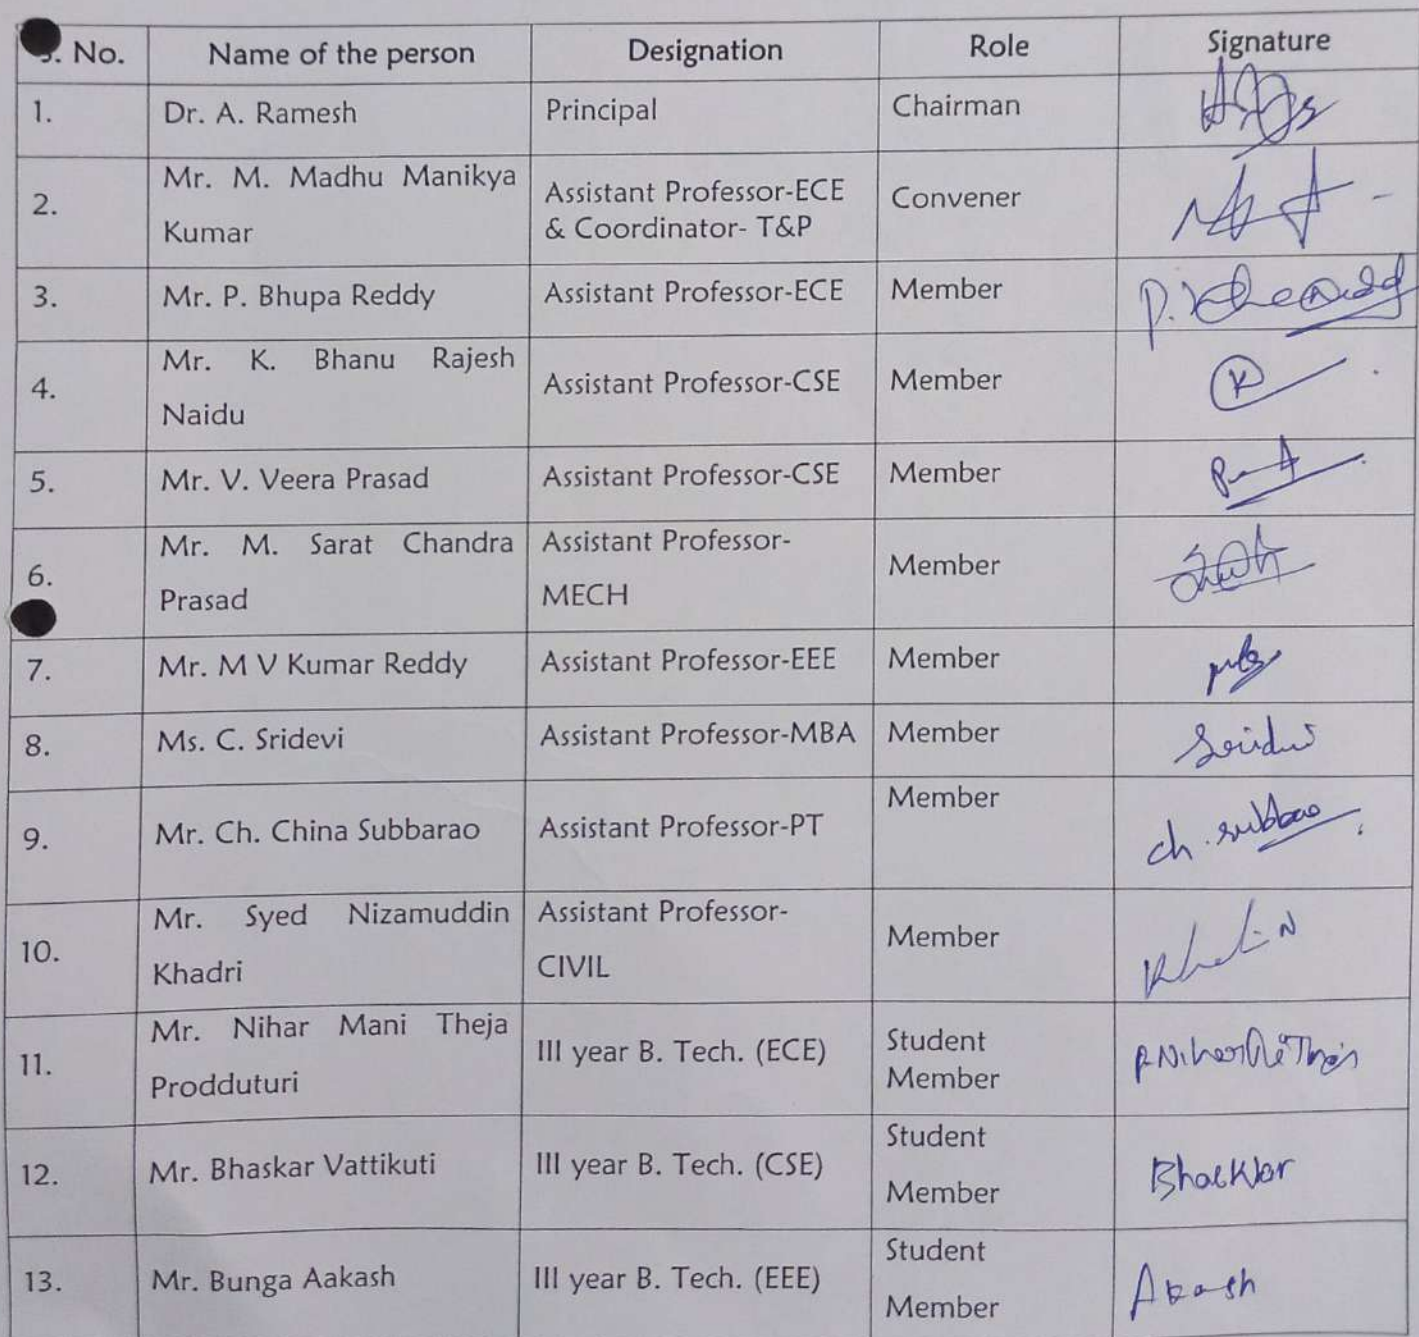 S. No. Name of the person Designation Role Signature
1. Dr. A. Ramesh Principal Chairman
2. Mr. M. Madhu Manikya
Kumar Assistant Professor-ECE
& Coordinator- T&P Convener
3. Mr. P. Bhupa Reddy Assistant Professor-ECE Member
4. Mr. K. Bhanu Rajesh
Naidu Assistant Professor-CSE Member
5. Mr. V. Veera Prasad Assistant Professor-CSE Member
6. Mr. M. Sarat Chandra
Prasad Assistant Professor-
MECH Member
7. Mr. M V Kumar Reddy Assistant Professor-EEE Member
8. Ms. C. Sridevi Assistant Professor-MBA Member
9. Mr. Ch. China Subbarao Assistant Professor-PT Member ch. subbao
10. Mr. Syed Nizamuddin
Khadri Assistant Professor-
CIVIL Member
11. Mr. Nihar Mani Theja
Prodduturi III year B. Tech. (ECE) Student
Member
12. Mr. Bhaskar Vattikuti III year B. Tech. (CSE) Student
Member Bhaskar
13. Mr. Bunga Aakash III year B. Tech. (EEE) Student
Member Akash